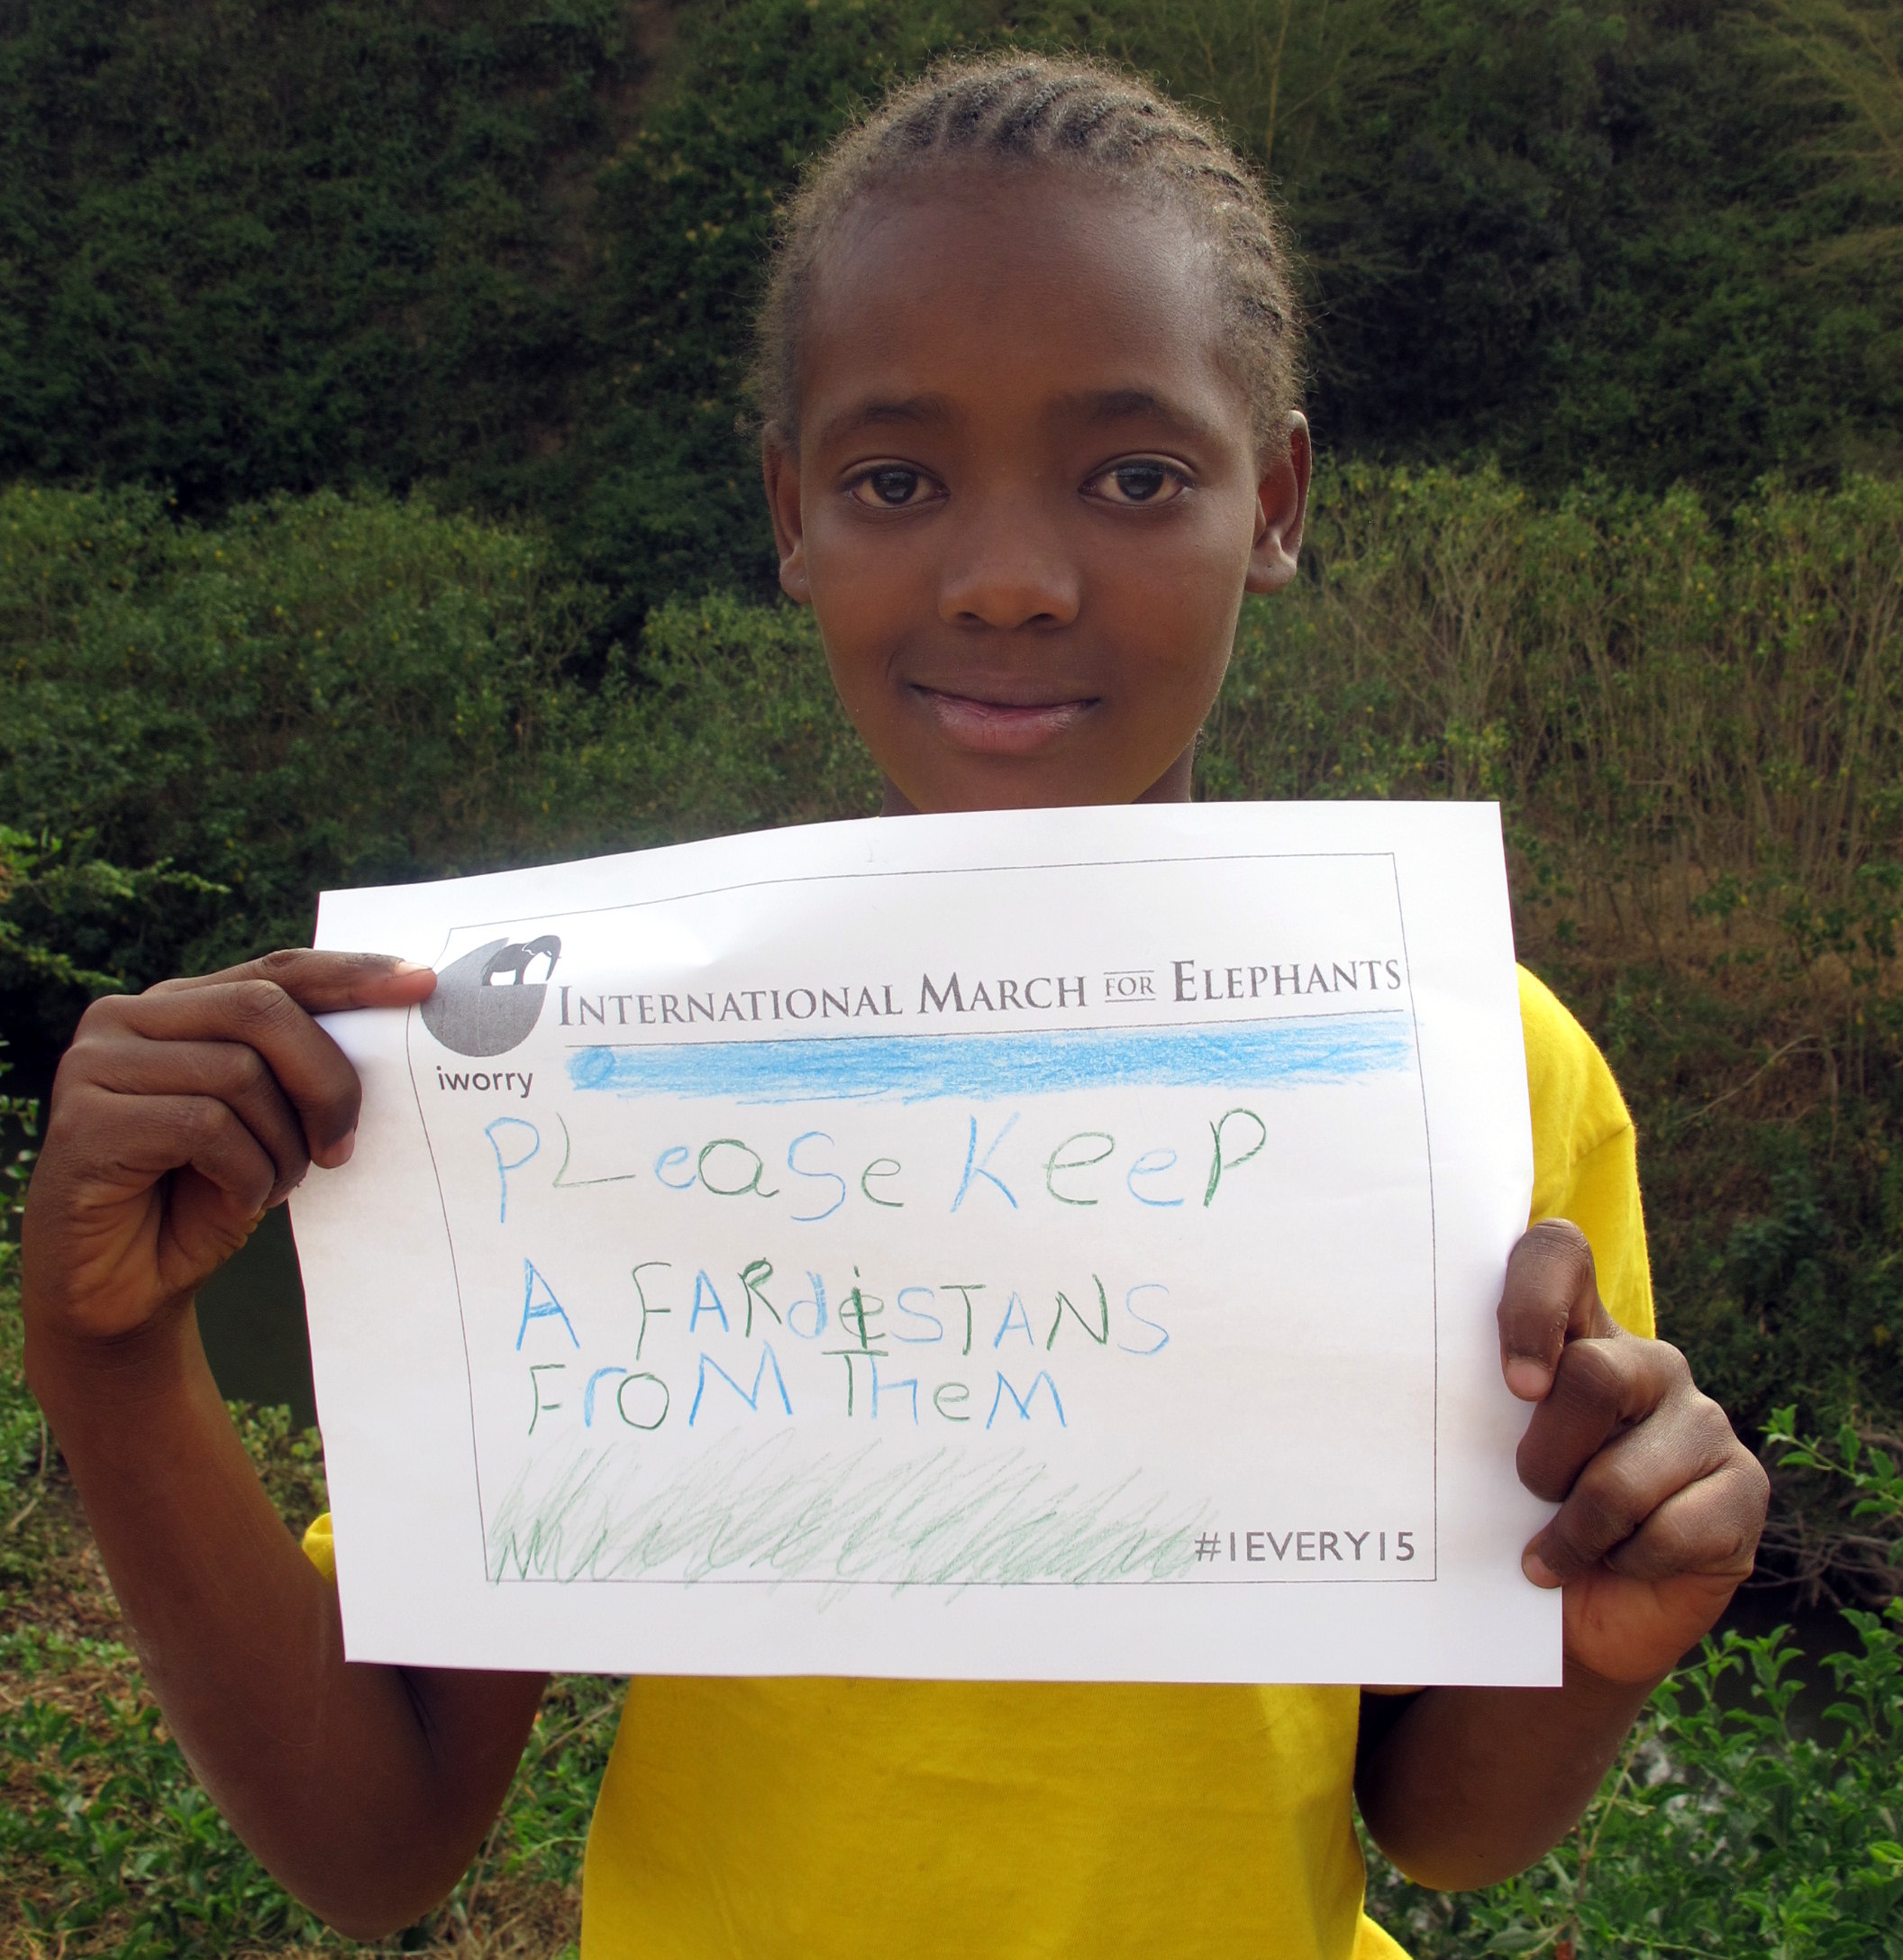 INTERNATIONAL MARCH FOR ELEPHANTS
iworry
PLeaSe Keep
A FARdiSTANS
FroM THeM
#1EVERY15